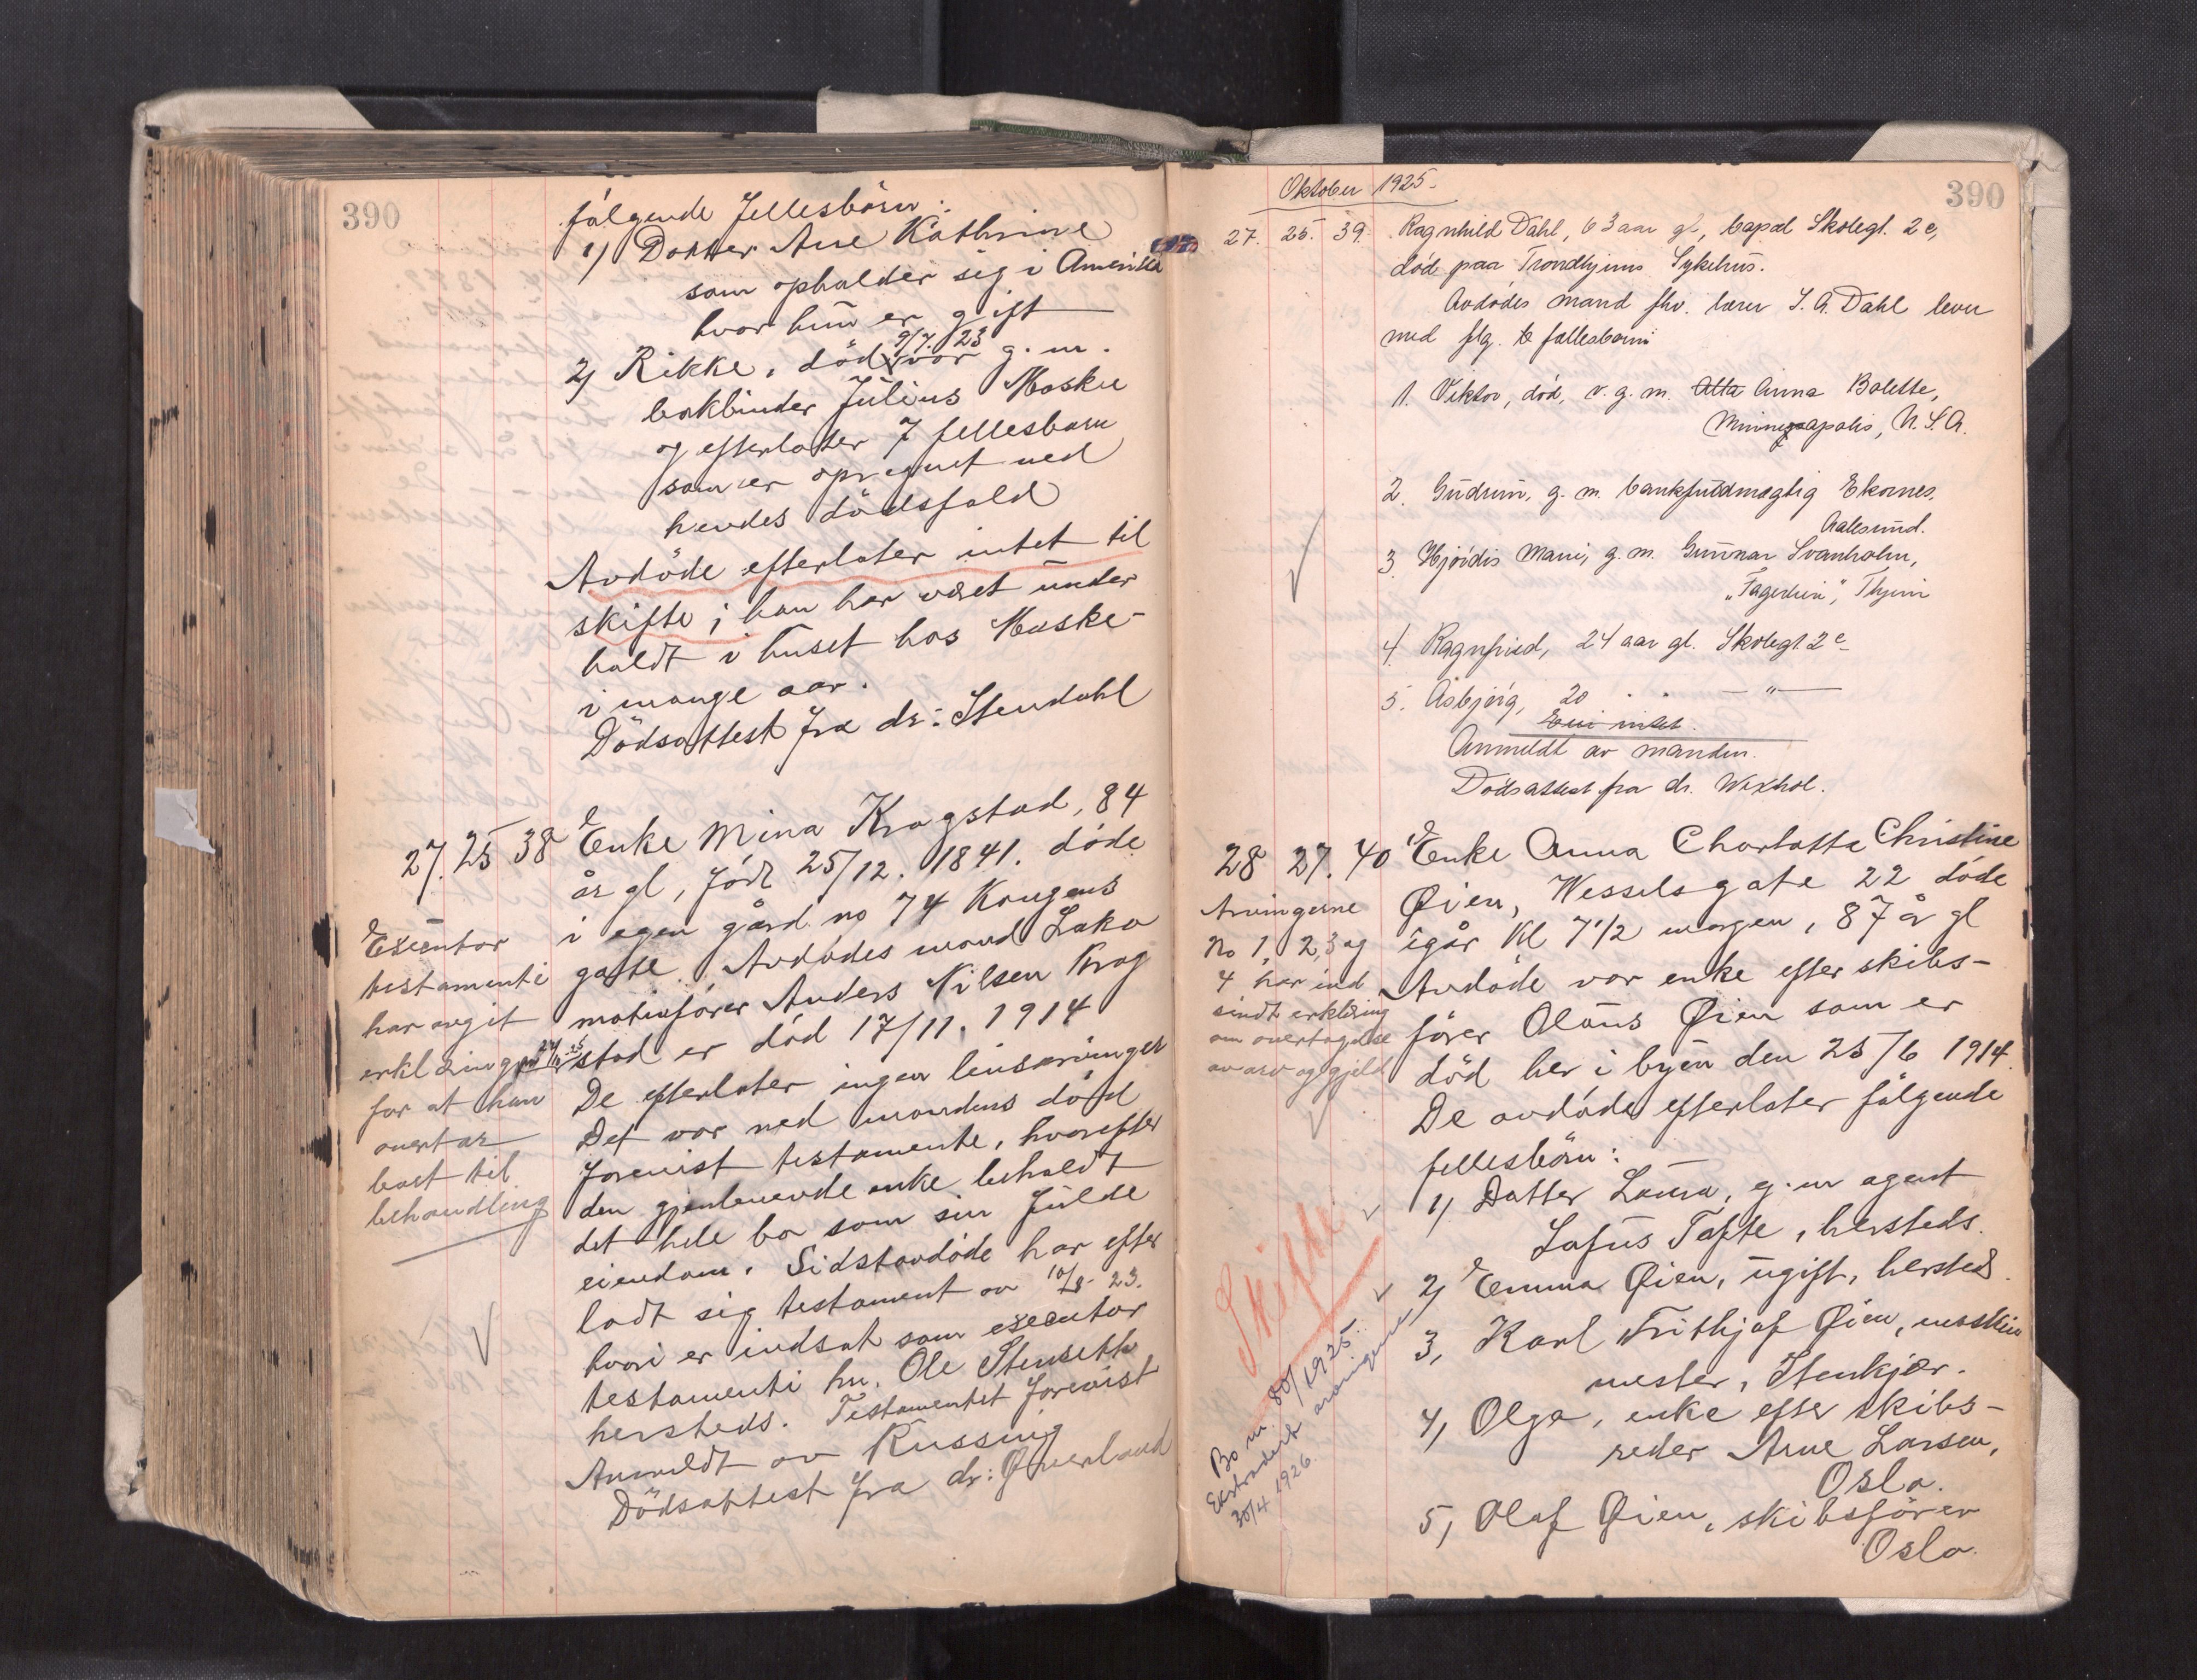 390
følgende fellesbörn:
1) Datter Ane Kathrine
som opholder sig i Amerika
hvor hun er gift
9/7. 23
2) Rikke, död, var g. m.
bokbinder Julius Moske
og efterlater 7 fellesbarn
som er opregnet ved
hendes dödsfald
Avdöde efterlater intet til
skifte; han har været under
holdt i huset hos Moske-
i mange aar.
Dödsattest fra dr: Stendahl
27. 25 38 Enke Mina Kragstad, 84
år gl, född 25/12. 1841. döde
i egen gård no 74 Kongens
gate. Avdödes mand Loko
motivförer Anders Nilsen Krag
stad er död 17/11. 1914
De efterlater ingen livsarvinger
Det var ved mandens död
forevist testamente, hvorefter
den gjenlevende enke beholdt
det hele bo som sin fulde
eiendom. Sidstavdöde har efter
ladt sig testament av 10/8- 23.
hvori er indsat som executor
testamenti hr. Ole Stenseth
hersteds. Testamentet forevist
Anmeldt av Russing
Dödsattest fra dr: Øverland
Executor
testamenti
har avgit
erklæring
for at han
overtar
boet til
behandling
Oktober 1925-
390
27. 25. 39. Ragnhild Dahl, 63 aar gl, bopæl Skolegt. 2 c,
död paa Trondhjems Sykehus.
Avdödes mand fhv. lærer S. A. Dahl lever
med flg. fællesbarn
1. Viktor, död, v. g. m. Anna Bolette,
Minneapolis, U. S. A.
2. Gudrun, g. m. bankfuldmægtig Ekornes,
Aalesund.
3. Hjördis Marie, g. m. Gunnar Svanholm,
"Fagerlien", Thjem
4. Ragnfrid, 24 aar gl. Skolegt. 2 c-
5. Asbjörg, 20 - - — " —
Eier intet.
Anmeldt av manden.
Dödsattest fra dr. Waxhol.
28 27. 40 Enke Anna Charlotte Christine
Øien, Wesselsgate 22 döde
igår Kl 7 1/2 morgen, 87 år gl
Avdöde var enke efter skibs-
förer Olaus Øien som er
död her i byen den 25/6 1914.
De avdöde efterlater fölgende
fellesbörn:
1) Datter Laura, g. m agent
Lafus Tafte, hersteds.
2) Emma Øien, ugift, hersteds.
3, Karl Frithjof Øien, maskin
mester, Stenkjær.
4, Olga, enke efter skibs-
reder Arne Larsen,
Oslo.
5, Olaf Øien, skibsförer
Oslo.
Arvingerne
No 1, 2, 3 og
4 har ind
sendt erklæring
om overtagelse
av arv og gjeld
Skifte
Bo nr. 80/1925.
Ekstradert arvingene
30/4 1926.